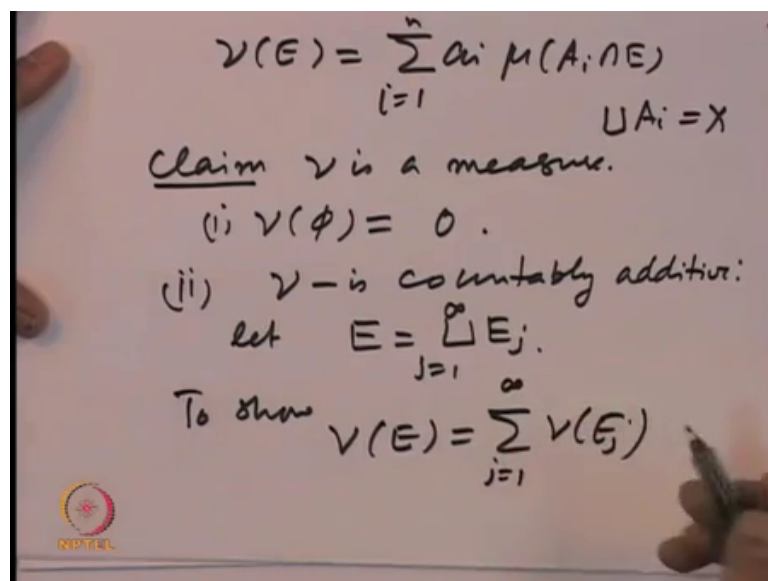 ν(E) = n Σ i=1 ai μ(Ai ∩ E)
⊔ Ai = X
Claim ν is a measure.
(i) ν(φ) = 0 .
(ii) ν – is countably additive:
let E = ∞ ⊔ j=1 Ej.
To show ν(E) = ∞ Σ j=1 ν(Ej)
NPTEL